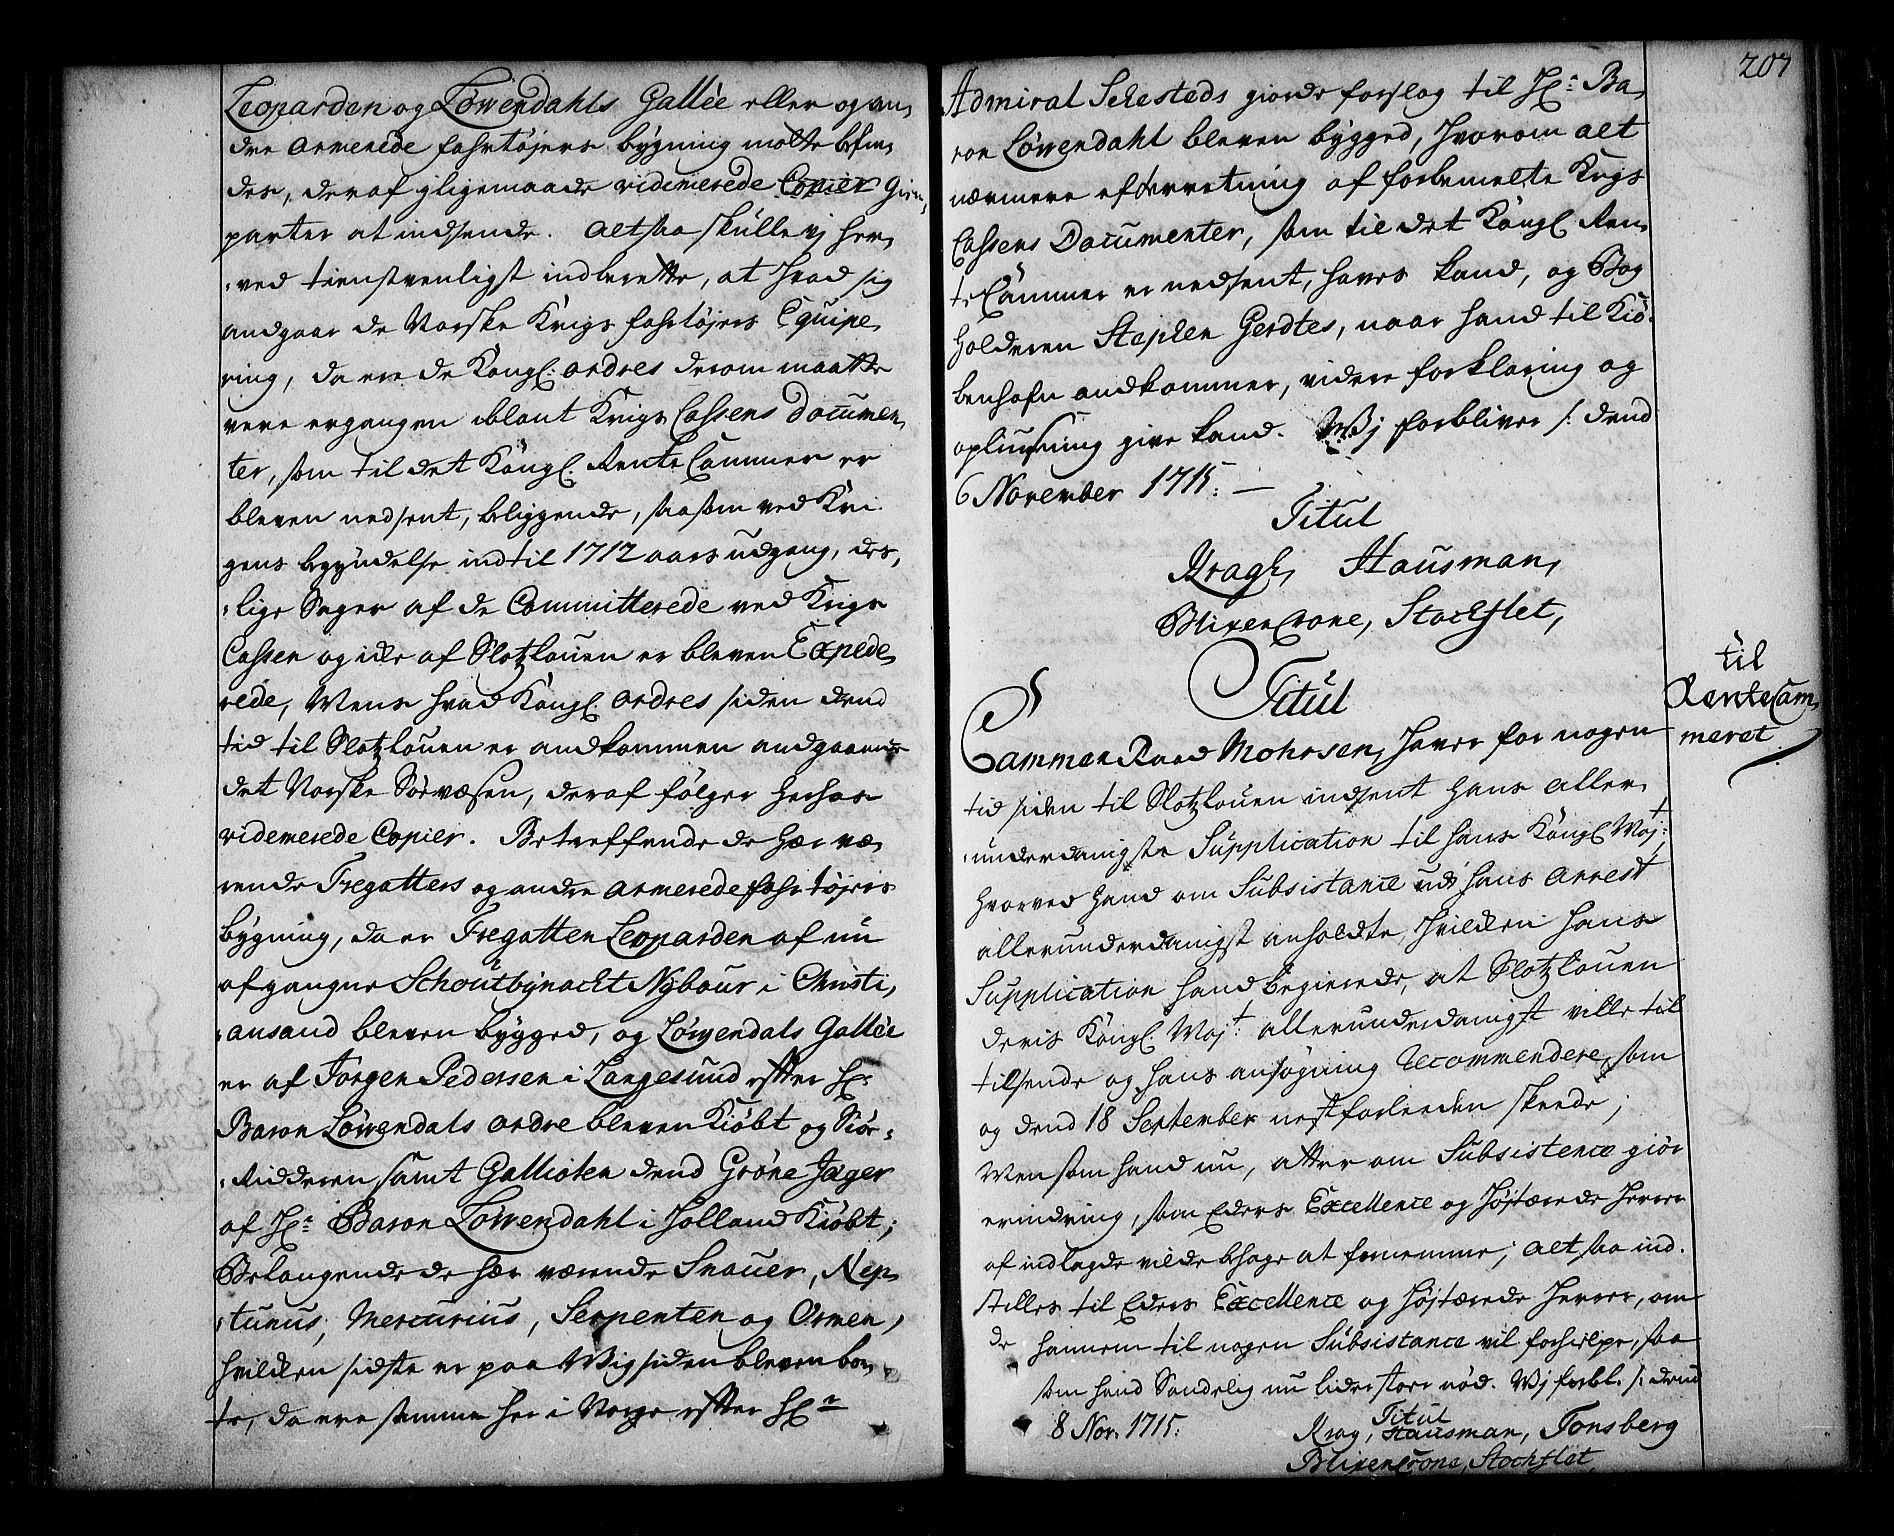 Leoparden og Løwendahls Gallée eller og an,
dre armerede fahrtøjers bÿgning motte befin,
des, deraf gligemaade videmerede Copier gien,
parter at indsende. altsaa skulle vj her,
,ved tienstvenligst indberette, at hvad sig
andgaar de Norske Krigs fahrtøjers Equipe,
ring, da ere de Kongl: ordres derom maatte
vere ergangen iblant Krigs Cassens documen,
ter, som til det Köngl. Rente Cammer er
bleven nedsent, beliggende, saasom ved Kri.
gens begÿndelse indtil 1712 aars udgang, des,
,lige Sager af de Committerede ved Krigs
Cassen og icke af Slotzlouen er bleven Expede,
rede, Mens hvad Köngl. ordres siden dend
tid til Slotzlouen er andkommen andgaaende
det Norske Søe væsen, deraf følger herhos
videmerede Copier. Betreffende de hær væ,
rende Fregatters og andre armerede fahrtøjers
bÿgning, da er Fregatten Leoparden af nu
afgangne Schoutbÿnacht Nÿbour i Christi,
,ansand bleven bÿgged, og Løwendals Gallée
er af Jørgen Pedersen i Langesund efter Hr:
Baron Løwendals ordre bleven Kiøbt og Siør,
,Ridderen samt Gallioten dend Grøne Jæger
af Hr: Baron Löwendahl i Holland Kiøbt;
Belangende de hær værende Snauer, Nep,
,tunus, Mercurius, Serpenten og Ormen,
hvilcken sidste er paa Wigsiden bleven bor,
te, da ere samme her i Norge efter Hr:
207
Admiral Sehesteds giorde forslag til Hr: Ba,
ron Løwendahl bleven bÿgged, hvorom alt
nærmere efterretning af forbemelte Krigs
Cassens Documenter, som til det Köngl. Ren,
te Cammer er nedsent, haves kand, og Bog
holderen Stephen Gerdtes, naar hand til Kiø,
benhafn andkommer, videre forklaring og
oplüsning give kand. Wj forbliver /: dend
6 November 1715: —
Titul
Kragh, Hausman,
Blixencrone, Stochflet,
Titul
til
Rente Cam,
meret
Cammer Raad Mohrsen, haver for nogen
tid siden til Slotzlouen indsent hans aller,
,underdanigste Supplication til hans Köngl. Maj:t
hvorved hand om Subsistance udi hans arrest
allerunderdanigst anholdte, hvilcken hans
Supplication hand begierede, at Slotzlouen
deris Köngl. Maj:t allerunderdanigst ville til
tilsende og hans ansøgning recommendere, som
og dend 18 September nestforleeden skeede;
Men som hand nu, atter om Subsistence giør
erindring, som Eders Excellence og høitærede Herrer
af indlagde vilde behage at fornemme; alt saa ind.
stilles til Eders Excellence og høitærede Herrer, om
de hannem til nogen Subsistance vil forhielpe, saa
som hand Sandelig nu lider stoer nød. Wj forbl. /: dend
8 Nov. 1715:
Titul
Krag, Hausman, Tonsberg
Blixencrone, Stochflet